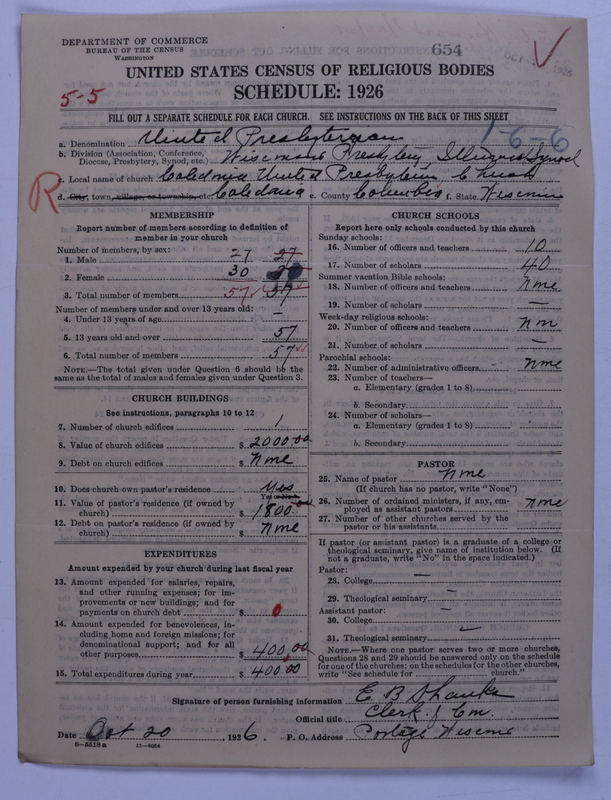 DEPARTMENT OF COMMERCE
BUREAU OF THE CENSUS
WASHINGTON
654
OCT
UNITED STATES CENSUS OF RELIGIOUS BODIES
SCHEDULE: 1926
5-5
FILL OUT A SEPARATE SCHEDULE FOR EACH CHURCH. SEE INSTRUCTIONS ON THE BACK OF THIS SHEET
1-6-6
a. Denomination United Presbyterian
b. Division (Association, Conference, Diocese, Presbytery, Synod, etc.) Wisconsin Presbytery, Illinois Synod
c. Local name of church Caledonia United Presbyterian Church
R
d. City, town, village, or township, etc. Caledonia e. County Columbia f. State Wisconsin
MEMBERSHIP
Report number of members according to definition of member in your church
Number of members, by sex:
1. Male 27 27
2. Female 30
3. Total number of members 57 57
Number of members under and over 13 years old:
4. Under 13 years of age —
5. 13 years old and over 57
6. Total number of members 57
NOTE.—The total given under Question 6 should be the same as the total of males and females given under Question 3.
CHURCH BUILDINGS
See instructions, paragraphs 10 to 12
7. Number of church edifices 1
8. Value of church edifices $ 2000.00
9. Debt on church edifices $ None
10. Does church own pastor's residence Yes
Yes or No
11. Value of pastor's residence (if owned by church) $ 1800.00
12. Debt on pastor's residence (if owned by church) $ None
EXPENDITURES
Amount expended by your church during last fiscal year
13. Amount expended for salaries, repairs, and other running expenses; for improvements or new buildings; and for payments on church debt $ 0
14. Amount expended for benevolences, including home and foreign missions; for denominational support; and for all other purposes $ 400.00
15. Total expenditures during year $ 400.00
CHURCH SCHOOLS
Report here only schools conducted by this church
Sunday schools:
16. Number of officers and teachers 10
17. Number of scholars 40
Summer vacation Bible schools:
18. Number of officers and teachers None
19. Number of scholars —
Week-day religious schools:
20. Number of officers and teachers None
21. Number of scholars —
Parochial schools:
22. Number of administrative officers None
23. Number of teachers—
a. Elementary (grades 1 to 8)
b. Secondary
24. Number of scholars—
a. Elementary (grades 1 to 8)
b. Secondary
PASTOR
25. Name of pastor None
(If church has no pastor, write "None")
26. Number of ordained ministers, if any, employed as assistant pastors None
27. Number of other churches served by the pastor or his assistants
If pastor (or assistant pastor) is a graduate of a college or theological seminary, give name of institution below. (If not a graduate, write "No" in the space indicated.)
Pastor:
28. College —
29. Theological seminary —
Assistant pastor:
30. College —
31. Theological seminary —
NOTE.—Where one pastor serves two or more churches, Questions 28 and 29 should be answered only on the schedule for one of the churches; on the schedules for the other churches, write "See schedule for church."
Signature of person furnishing information E B Shanks
Official title Clerk of Com.
Date Oct 20, 1926. P. O. Address Portage Wisconsin
8-5518a 11-8054